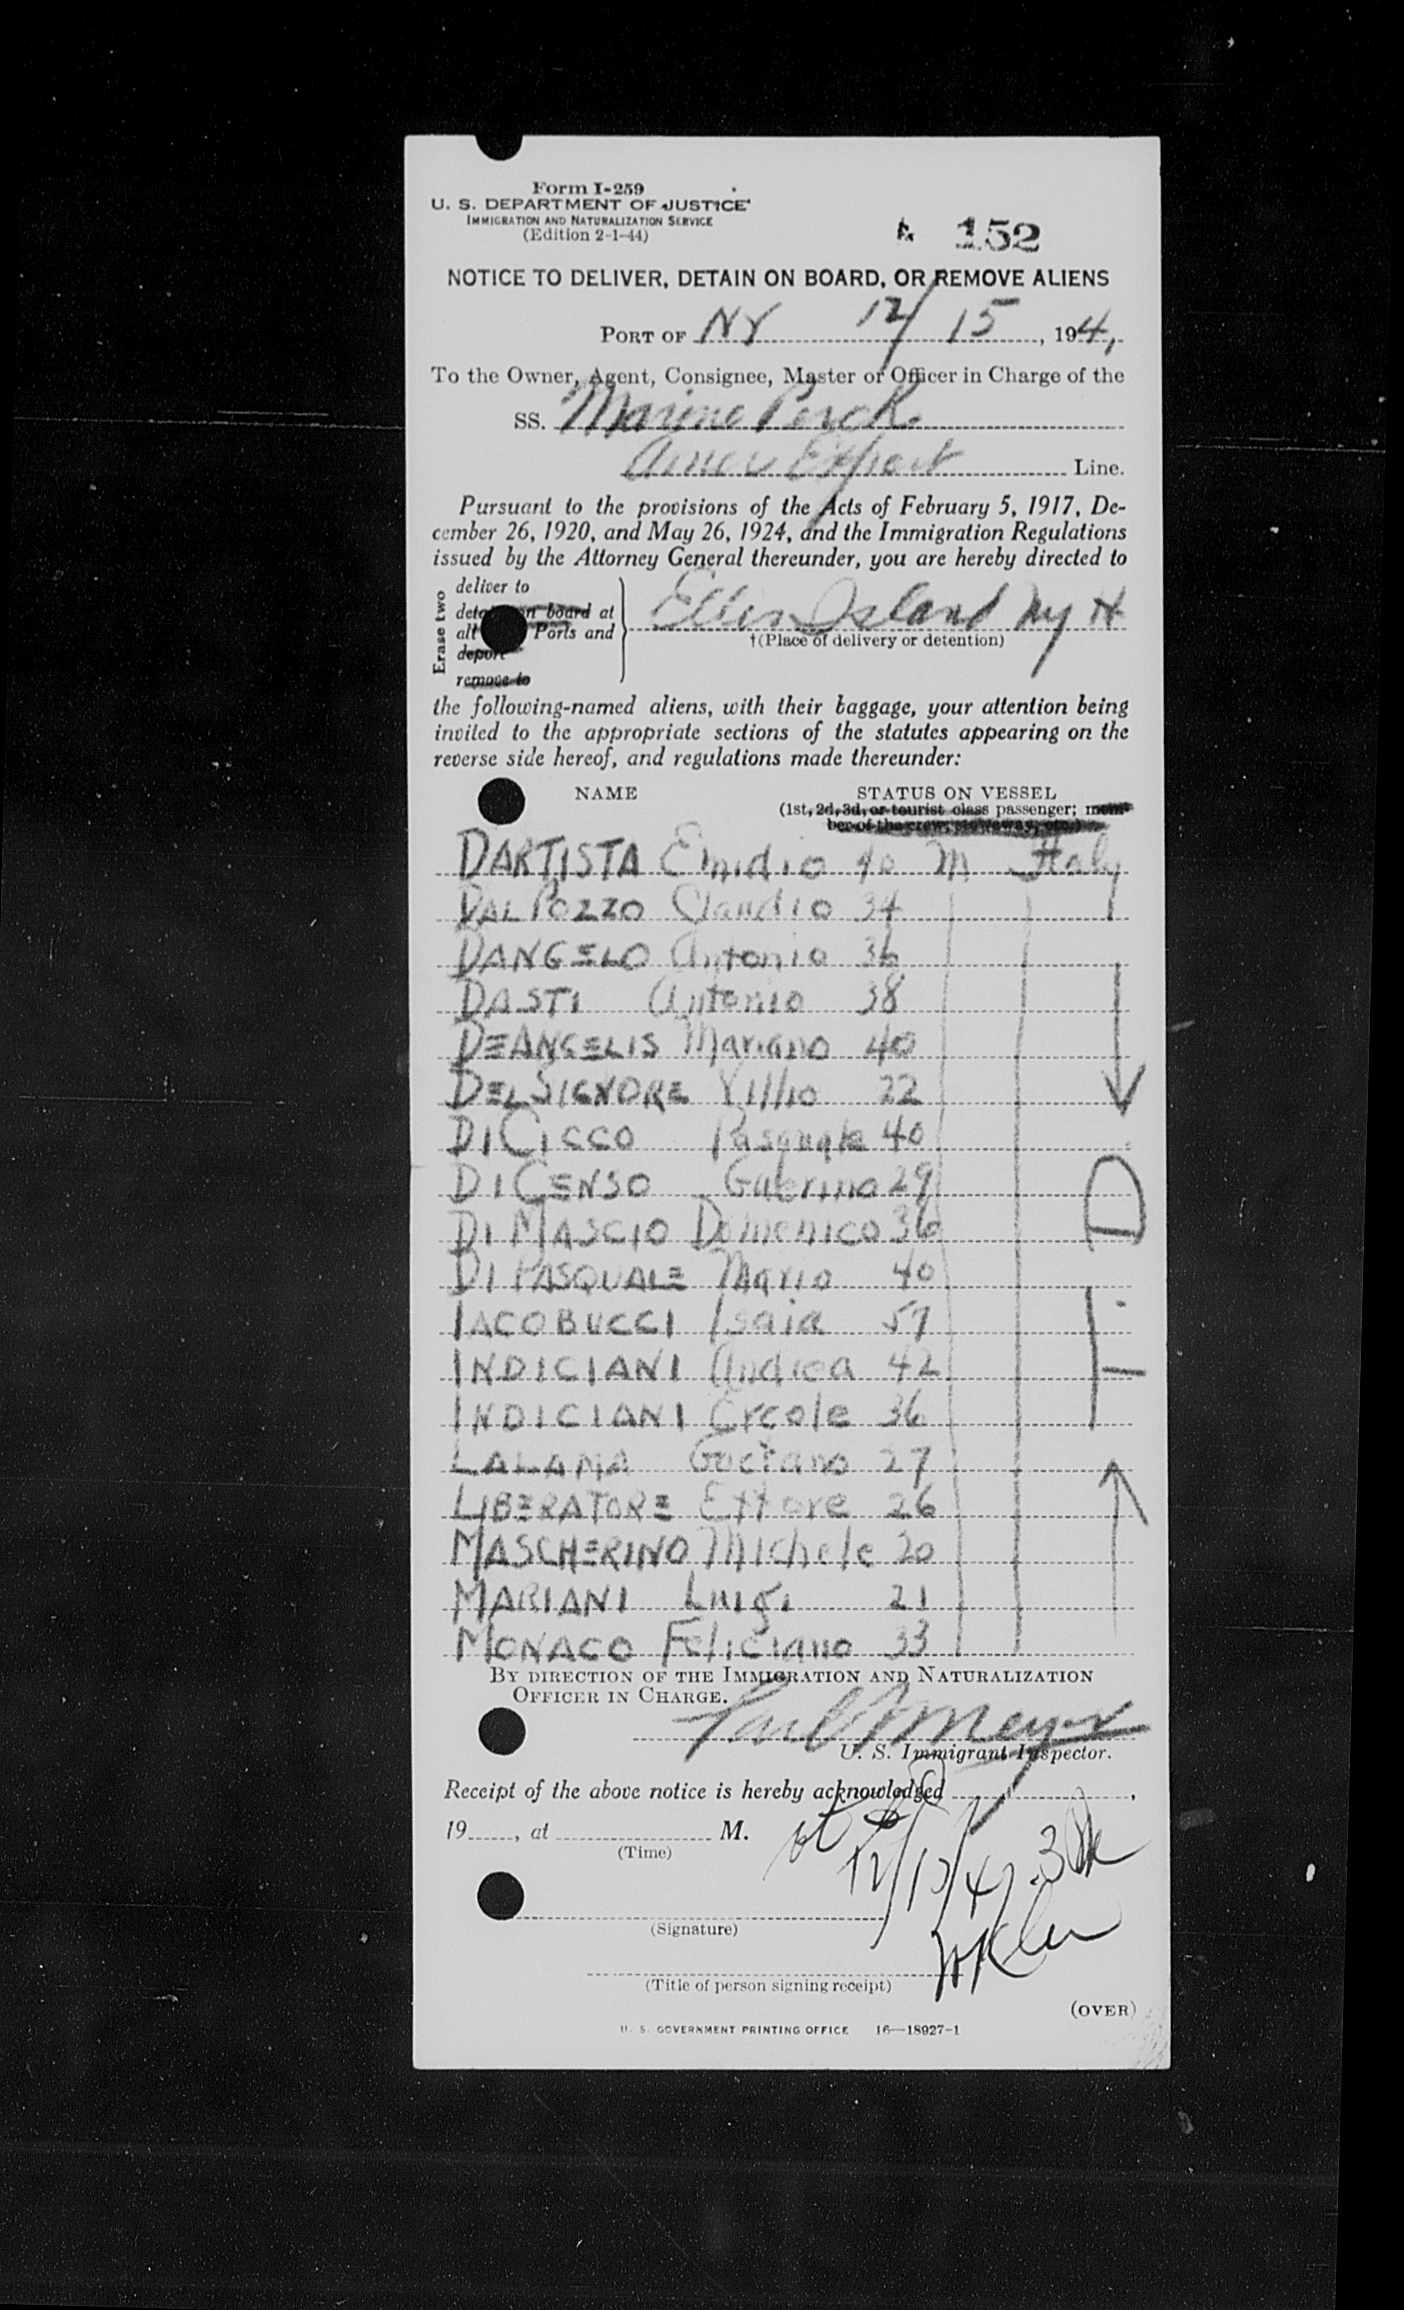 Form I-259
U. S. DEPARTMENT OF JUSTICE
IMMIGRATION AND NATURALIZATION SERVICE
(Edition 2-1-44)
152
NOTICE TO DELIVER, DETAIN ON BOARD, OR REMOVE ALIENS
PORT OF NY 12/15, 194
To the Owner, Agent, Consignee, Master or Officer in Charge of the
SS. Marine Perch
Amer Export Line.
Pursuant to the provisions of the Acts of February 5, 1917, De-
cember 26, 1920, and May 26, 1924, and the Immigration Regulations
issued by the Attorney General thereunder, you are hereby directed to
Erase two
deliver to
on board at
all Ports and
deport
remove to
Ellis Island NY H
†(Place of delivery or detention)
the following-named aliens, with their baggage, your attention being
invited to the appropriate sections of the statutes appearing on the
reverse side hereof, and regulations made thereunder:
NAME STATUS ON VESSEL
(1st, 2d, 3d, or tourist class passenger; mem-
ber of the crew, stowaway, etc.)
DARTISTA Emidio 40 M Italy
DAL POZZO Claudio 34
DANGELO Antonio 36
DASTI Antonio 38
DEANGELIS Mariano 40
DEL SIGNORE 22
DI CICCO Pasquale 40
DI CENSO Guerino 29
DI MASCIO Domenico 36
DI PASQUALE Mario 40
IACOBUCCI Isaia 57
INDICIANI Andrea 42
INDICIANI Ercole 36
LALAMA Gaetano 27
LIBERATORE Ettore 26
MASCHERINO Michele 20
MARIANI Luigi 21
MONACO Feliciano 33
BY DIRECTION OF THE IMMIGRATION AND NATURALIZATION
OFFICER IN CHARGE.
Meyer
U. S. Immigrant Inspector.
Receipt of the above notice is hereby acknowledged ,
19 , at M.
(Time)
(Signature)
(Title of person signing receipt)
(OVER)
U. S. GOVERNMENT PRINTING OFFICE 16—18927-1